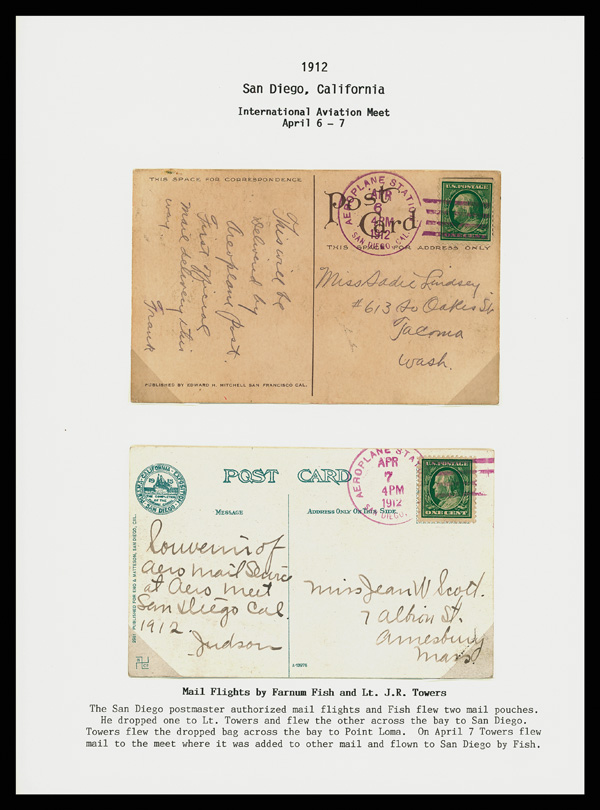 1912
San Diego, California
International Aviation Meet
April 6 – 7
THIS SPACE FOR CORRESPONDENCE
This will be
delivered by
Aeroplane Post.
First Official
Mail delivery this
way.
Frank
PUBLISHED BY EDWARD H. MITCHELL SAN FRANCISCO CAL.
Post
Card
THIS SPACE FOR ADDRESS ONLY
AEROPLANE STATION
APR
6
4 PM
1912
SAN DIEGO, CAL.
U.S. POSTAGE
Miss Sadie Lindsey
#613 So Oakes St
Tacoma
Wash.
PANAMA-CALIFORNIA EXPOSITION
1915
SAN DIEGO
POST CARD
MESSAGE
ADDRESS ONLY ON THIS SIDE
AEROPLANE STA
APR
7
4 PM
1912
SAN DIEGO,
U.S. POSTAGE
ONE CENT
Souvenir of
Aero Mail Service
at Aero Meet
San Diego Cal.
1912
Judson
Miss Jean W Scott.
7 Albion St.
Amesbury
Mass.
Mail Flights by Farnum Fish and Lt. J.R. Towers
The San Diego postmaster authorized mail flights and Fish flew two mail pouches.
He dropped one to Lt. Towers and flew the other across the bay to San Diego.
Towers flew the dropped bag across the bay to Point Loma.  On April 7 Towers flew
mail to the meet where it was added to other mail and flown to San Diego by Fish.